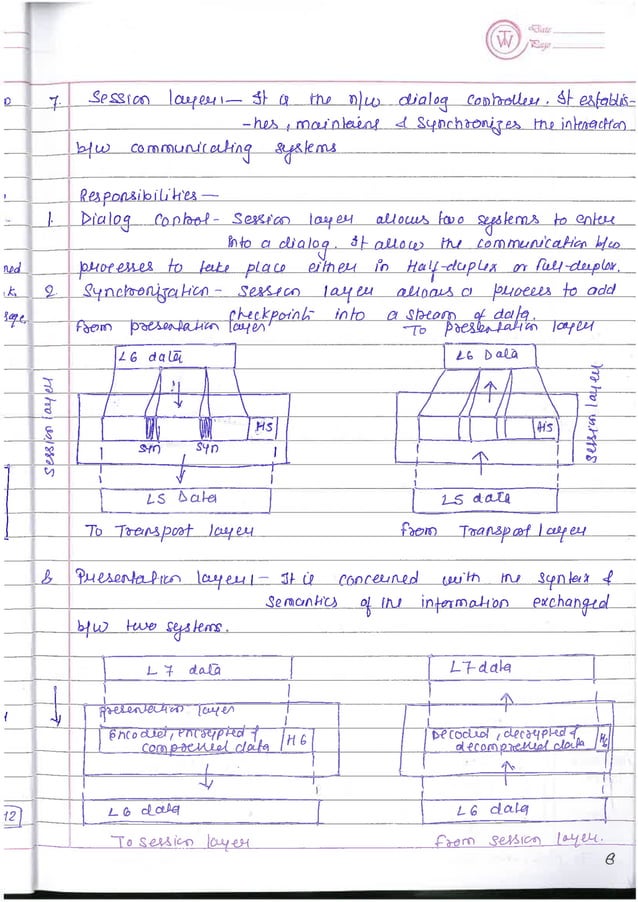 Date
Page
7. Session layer :- It is the n/w dialog controller. It establis-
-hes, maintains & synchronizes the interaction
b/w communicating systems
Responsibilities -
1. Dialog Control - Session layer allows two systems to enter
into a dialog. It allow the communication b/w
processes to take place either in Half-duplex or full-duplex.
2. Synchronization - Session layer allows a process to add
checkpoints into a stream of data.
from presentation layer
To presentation layer
L6 data
L6 Data
Session layer
H5
syn
syn
H5
Session layer
L5 Data
L5 data
To Transport layer
from Transport layer
8. Presentation layer :- It is concerned with the syntax &
semantics of the information exchanged
b/w two systems.
L7 data
L7 data
presentation layer
Encoded, encrypted &
compressed data
H6
Decoded, decrypted &
decompressed data
H6
L6 data
L6 data
To session layer
from session layer.
12
8